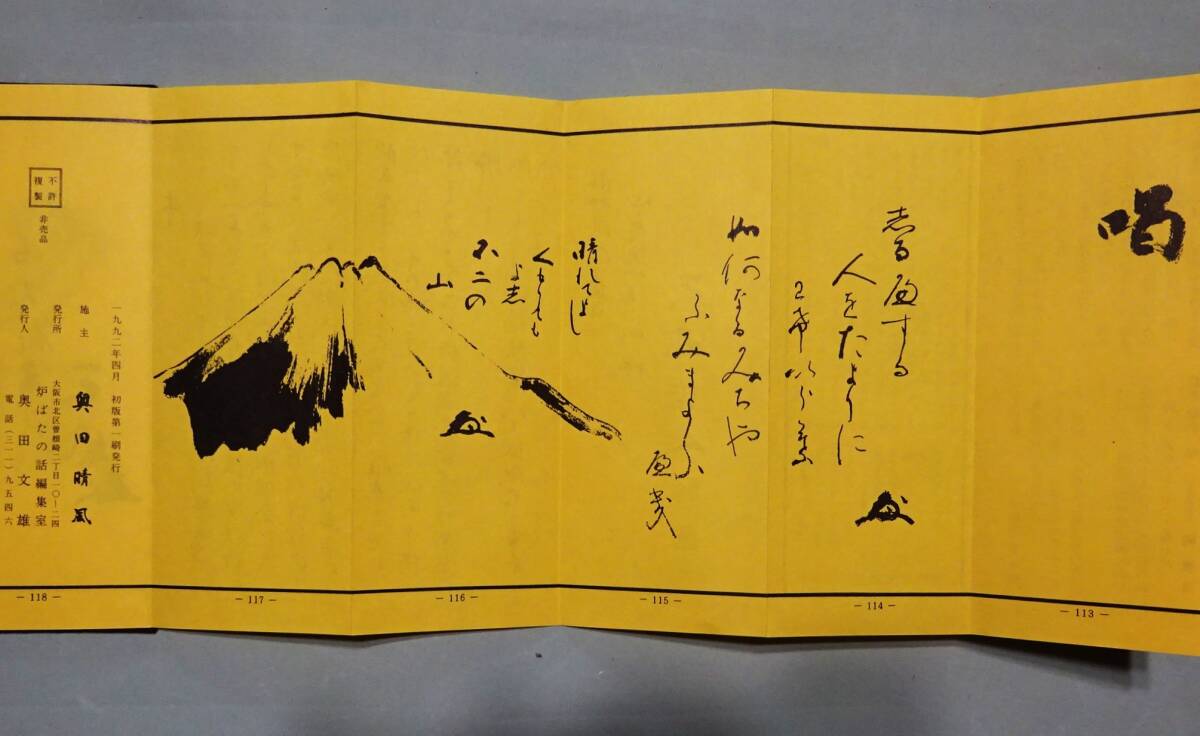 喝
志る遍する
人をたよりに
如何なるみちや
ふみまよふ
遍幾
晴れてよし
くもりても
よ志
不二の
山
一九九二年四月　初版第一刷発行
施主　奥田晴風
発行所　大阪市北区曽根崎二丁目一〇―二四
炉ばたの話編集室
発行人　奥田文雄
電話(三一一)九五四六
不許
複製
非売品
― 113 ―
― 114 ―
― 115 ―
― 116 ―
― 117 ―
― 118 ―